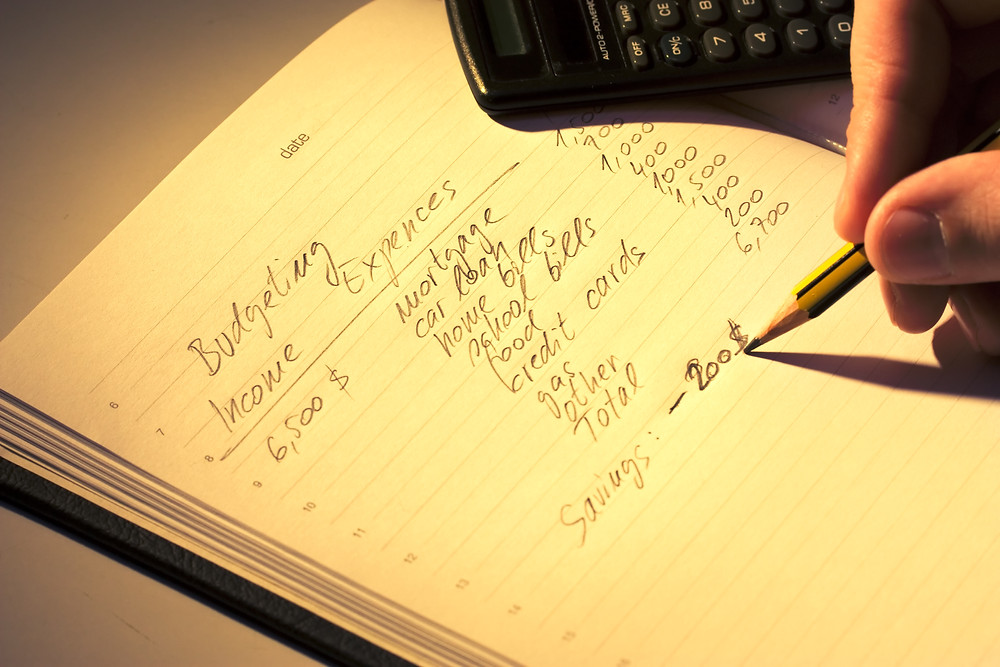 AUTO 2-POWER
MRC CE 8 5
OFF ON/C 7 4 1 0
date
12
Budgeting
Income Expences
6,500 $ mortgage 1,500
car loan 700
home bills 1,000
school bills 400
food 1000
credit cards 1,500
gas 400
other 200
Total 6,700
Savings: - 200 $
6
7
8
9
10
11
12
13
14
15